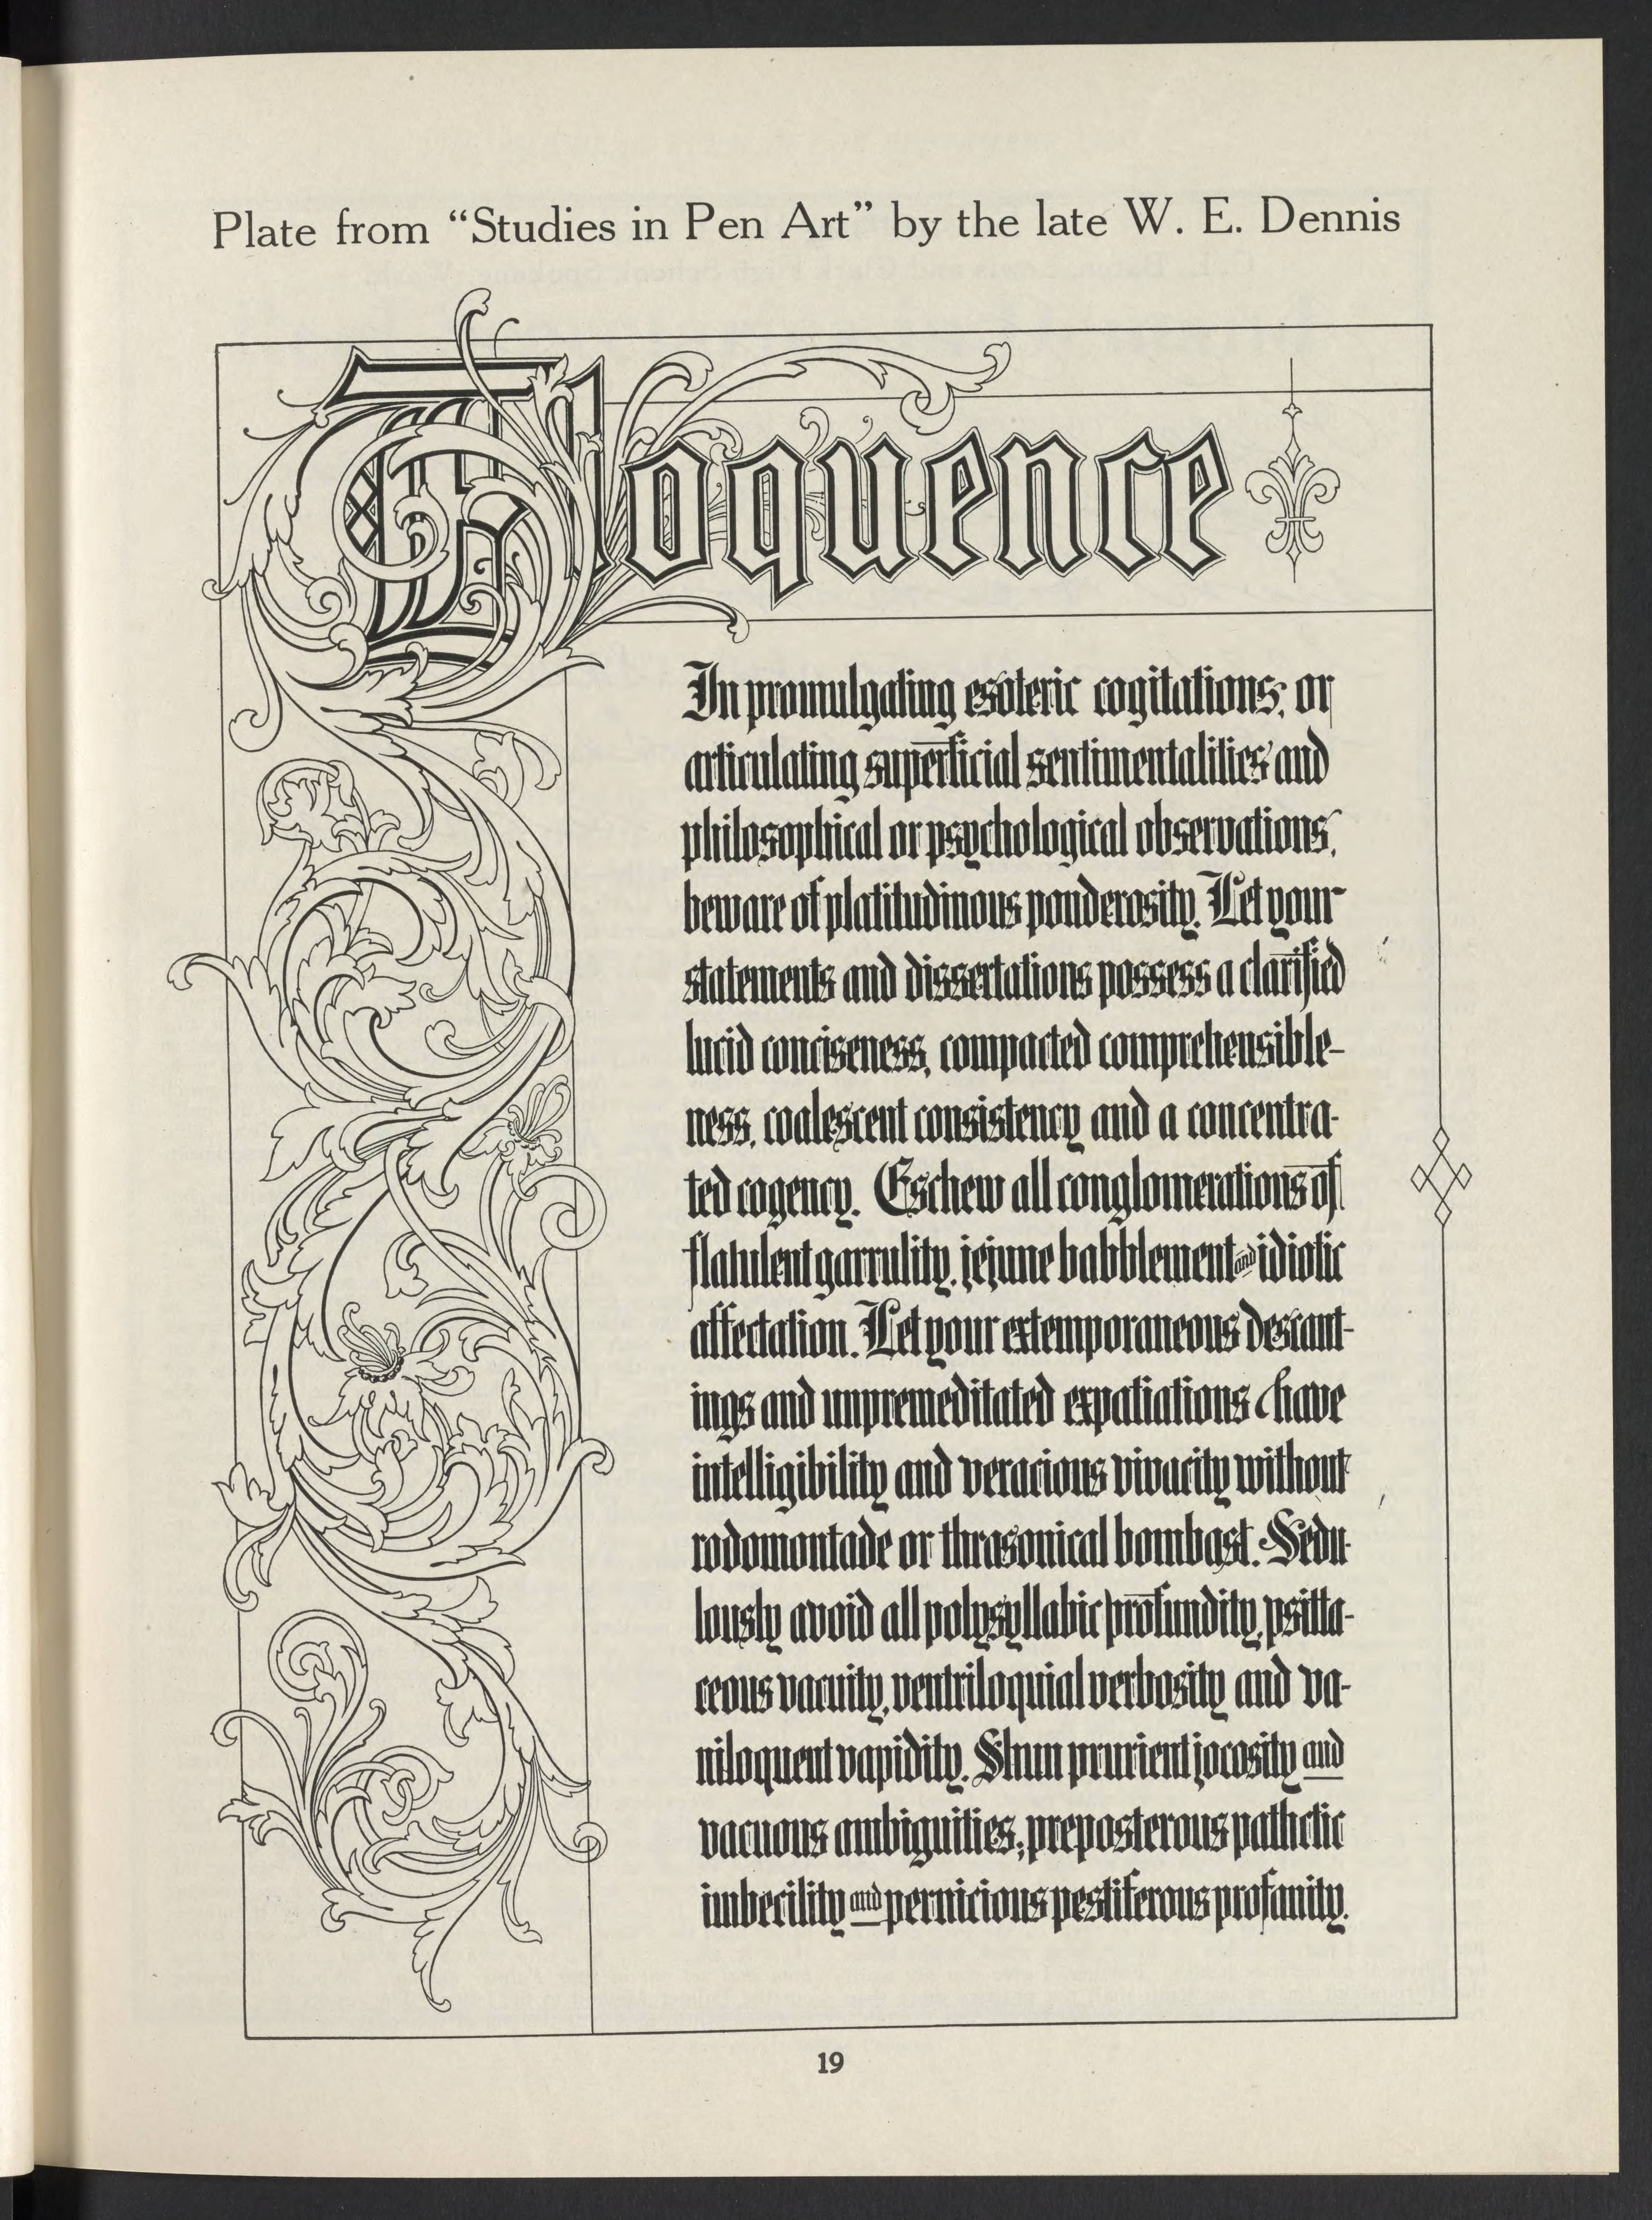 Plate from “Studies in Pen Art” by the late W. E. Dennis
Eloquence
In promulgating esoteric cogitations, or
articulating superficial sentimentalities and
philosophical or psychological observations,
beware of platitudinous ponderosity. Let your
statements and dissertations possess a clarified
lucid conciseness, compacted comprehensible-
ness, coalescent consistency and a concentra-
ted cogency. Eschew all conglomerations of
flatulent garrulity, jejune babblement and idiotic
affectation. Let your extemporaneous descant-
ings and unpremeditated expatiations have
intelligibility and veracious vivacity without
rodomontade or thrasonical bombast. Sedu-
lously avoid all polysyllabic profundity, psitta-
ceous vacuity, ventriloquial verbosity and va-
niloquent vapidity. Shun prurient jocosity and
vacuous ambiguities, preposterous pathetic
imbecility and pernicious pestiferous profanity.
19